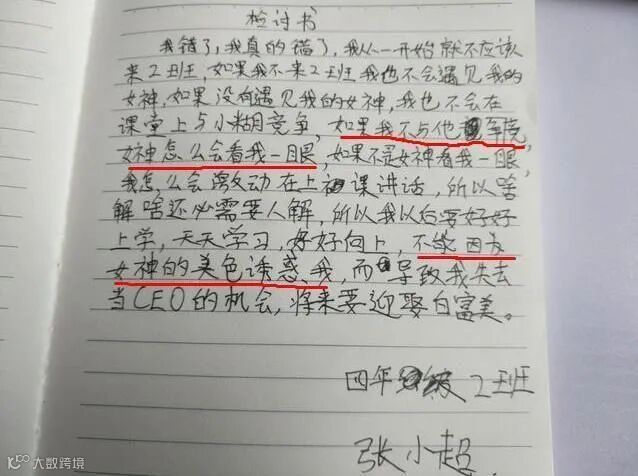 检讨书
我错了，我真的错了，我从一开始就不应该
来2班，如果我不来2班我也不会遇见我的
女神，如果没有遇见我的女神，我也不会在
课堂上与小糊竞争，如果我不与他争竞，
女神怎么会看我一眼，如果不是女神看我一眼，
我怎么会激动在上课讲话，所以啥
解啥还必需要人解，所以我以后要好好
上学，天天学习，好好向上，不能因为
女神的美色诱惑我，而导致我失去
当CEO的机会，将来要迎娶白富美。
四年级2班
张小超
大数跨境